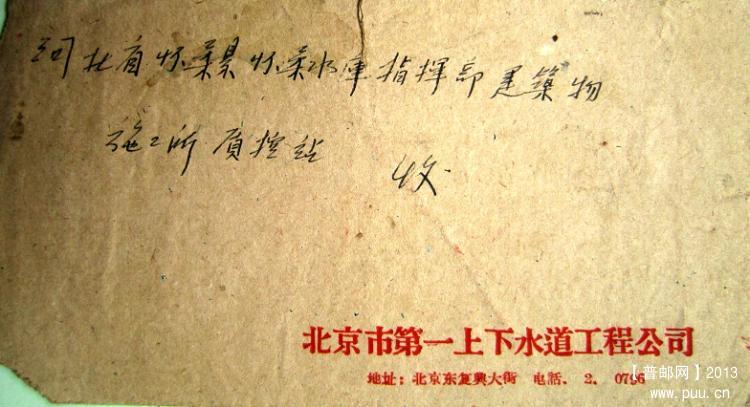 河北省怀柔县怀柔水庫指揮部建築物
施工所质控站 收
北京市第一上下水道工程公司
地址：北京东复興大街 电話．2．0796
【普邮网】2013
www.puu.cn